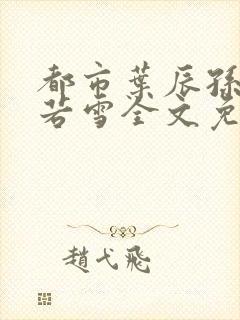 都市葉辰孫
若雪全文免
趙弋飛